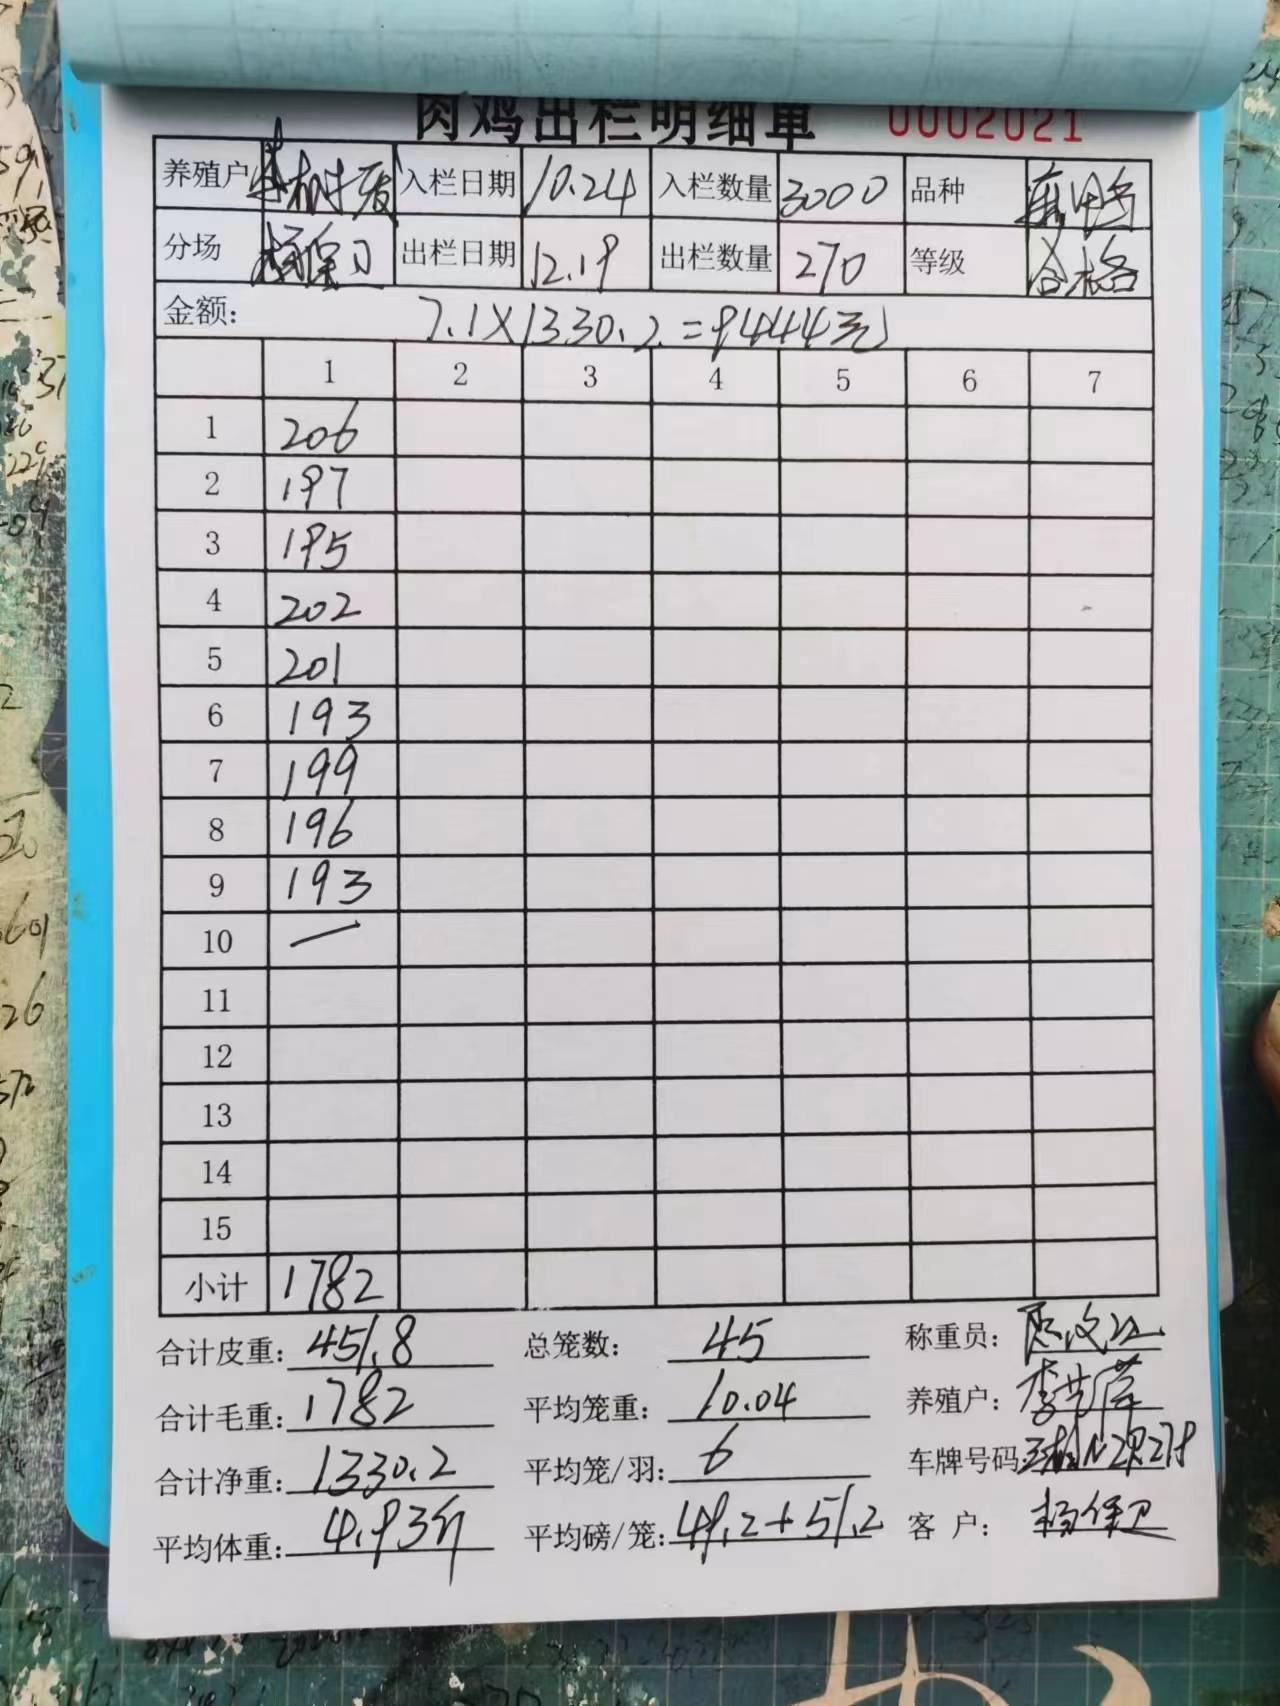 肉鸡出栏明细单 0002021
养殖户 入栏日期 10.24 入栏数量 3000 品种
分场 杨保卫 出栏日期 12.19 出栏数量 270 等级 合格
金额: 7.1×1330.2=9444元
1 2 3 4 5 6 7
1 206
2 197
3 195
4 202
5 201
6 193
7 199
8 196
9 193
10 —
11
12
13
14
15
小计 1782
合计皮重: 451.8 总笼数: 45 称重员:
合计毛重: 1782 平均笼重: 10.04 养殖户: 李
合计净重: 1330.2 平均笼/羽: 6 车牌号码:
平均体重: 4.93斤 平均磅/笼: 49.2+51.2 客 户: 杨保卫